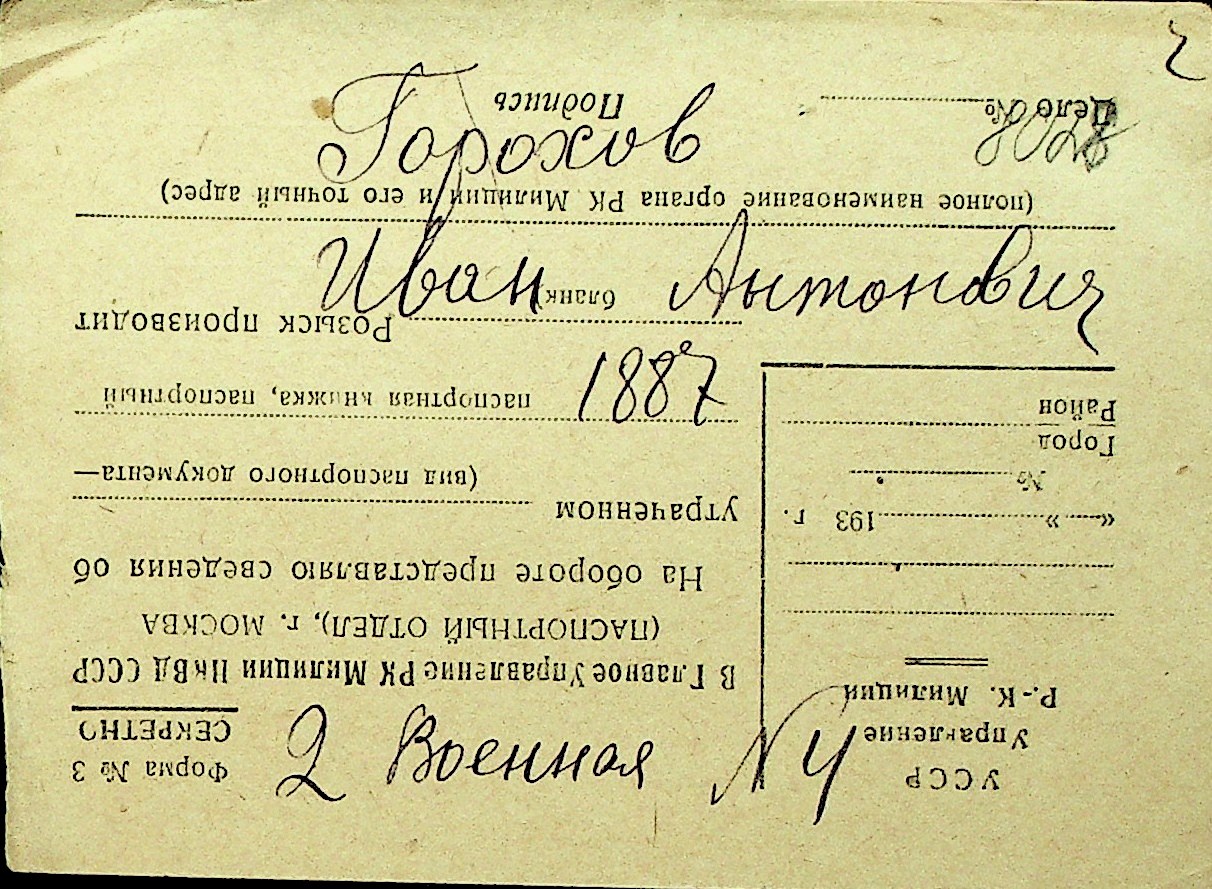 Горохов
Иван Антонович
1887
2 Военная № 4
8028
УССР
Управление
Р.-К. Милиции
«——»193 г.
№
Город
Район
Форма № 3
СЕКРЕТНО
В Главное Управление РК Милиции НКВД СССР
(ПАСПОРТНЫЙ ОТДЕЛ), г. МОСКВА
На обороте представляю сведения об
утраченном
(вид паспортного документа—
паспортная книжка, паспортный
бланк)
Розыск производит
(полное наименование органа РК Милиции и его точный адрес)
Дело №
Подпись